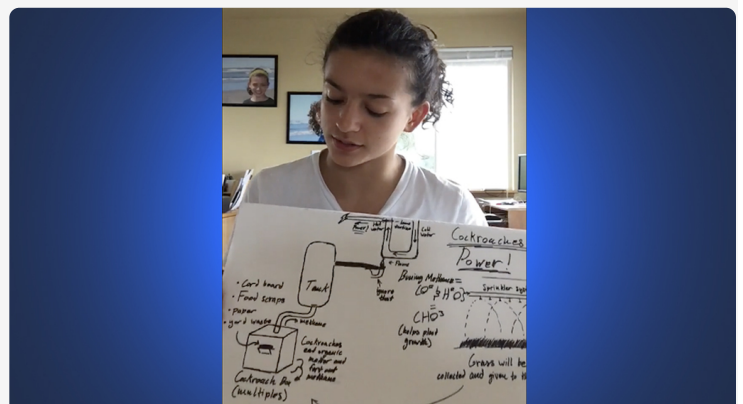 Cockroaches
Power!
Hot
water
Cold
water
Tank
Burning Methane =
CHO³
(helps plant
growth)
Sprinkler Sys
• Card board
• Food scraps
• paper
• yard waste
methane
Cockroaches
eat organic
matter and
fart out
methane
Cockroach Box
(multiples)
Grass will be
collected and given to th